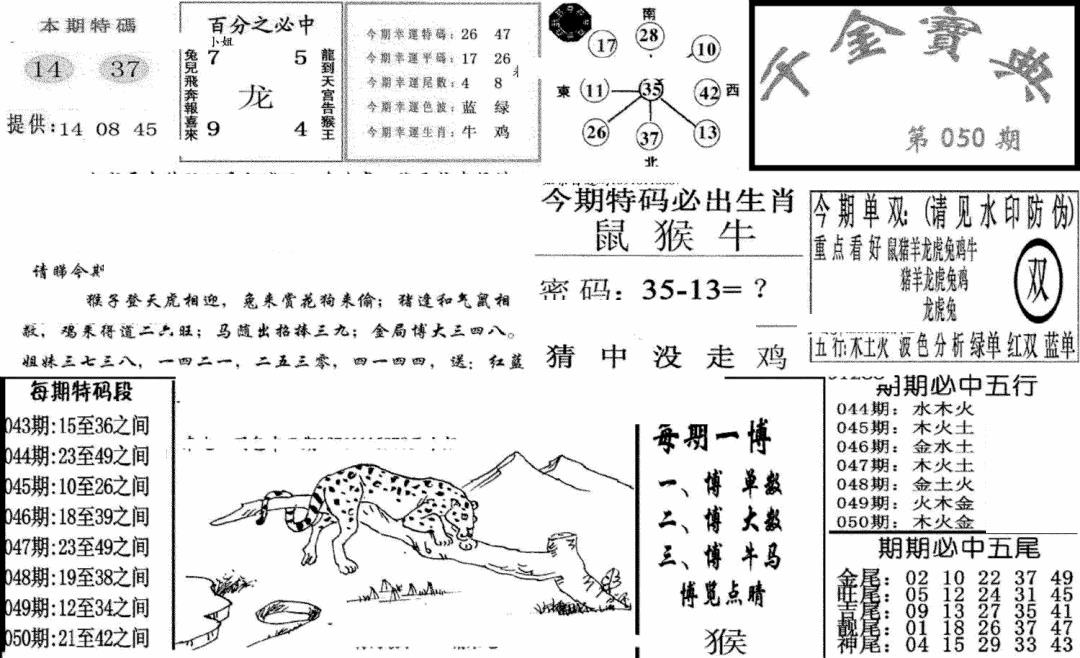 本期特碼
14 37
提供:14 08 45
百分之必中
小姐
兔兒飛奔報喜來
7 5
龙
9 4
龍到天宮告猴王
今期幸運特碼: 26 47
今期幸運平碼: 17 26
今期幸運尾數: 4 8
今期幸運色波: 蓝 绿
今期幸運生肖: 牛 鸡
南
17 28 10
東 11 35 42 西
26 37 13
北
金寶典
第 050 期
请睇今期
猴子登天虎相迎，兔来赏花狗来偷；猪逢和气鼠相
敖，鸡乘得道二六旺；马随出招捧三九；金局博大三四八。
姐妹三七三八，一四二一，二五三零，四一四四，送：红蓝
今期特码必出生肖
鼠 猴 牛
密码：35-13=？
猜 中 没 走 鸡
今期单双:(请见水印防伪)
重点看好 鼠猪羊龙虎兔鸡牛
猪羊龙虎兔鸡
龙虎兔
双
五行:木土火 波色分析 绿单 红双 蓝单
每期特码段
043期:15至36之间
044期:23至49之间
045期:10至26之间
046期:18至39之间
047期:23至49之间
048期:19至38之间
049期:12至34之间
050期:21至42之间
每期一博
一、博 单数
二、博 大数
三、博 牛马
博览点睛
猴
期期必中五行
044期：水木火
045期：木火土
046期：金水土
047期：木火土
048期：金土火
049期：火木金
050期：木火金
期期必中五尾
金尾：02 10 22 37 49
旺尾：05 12 24 31 45
吉尾：09 13 27 35 41
靓尾：01 18 26 37 47
神尾：04 15 29 33 43